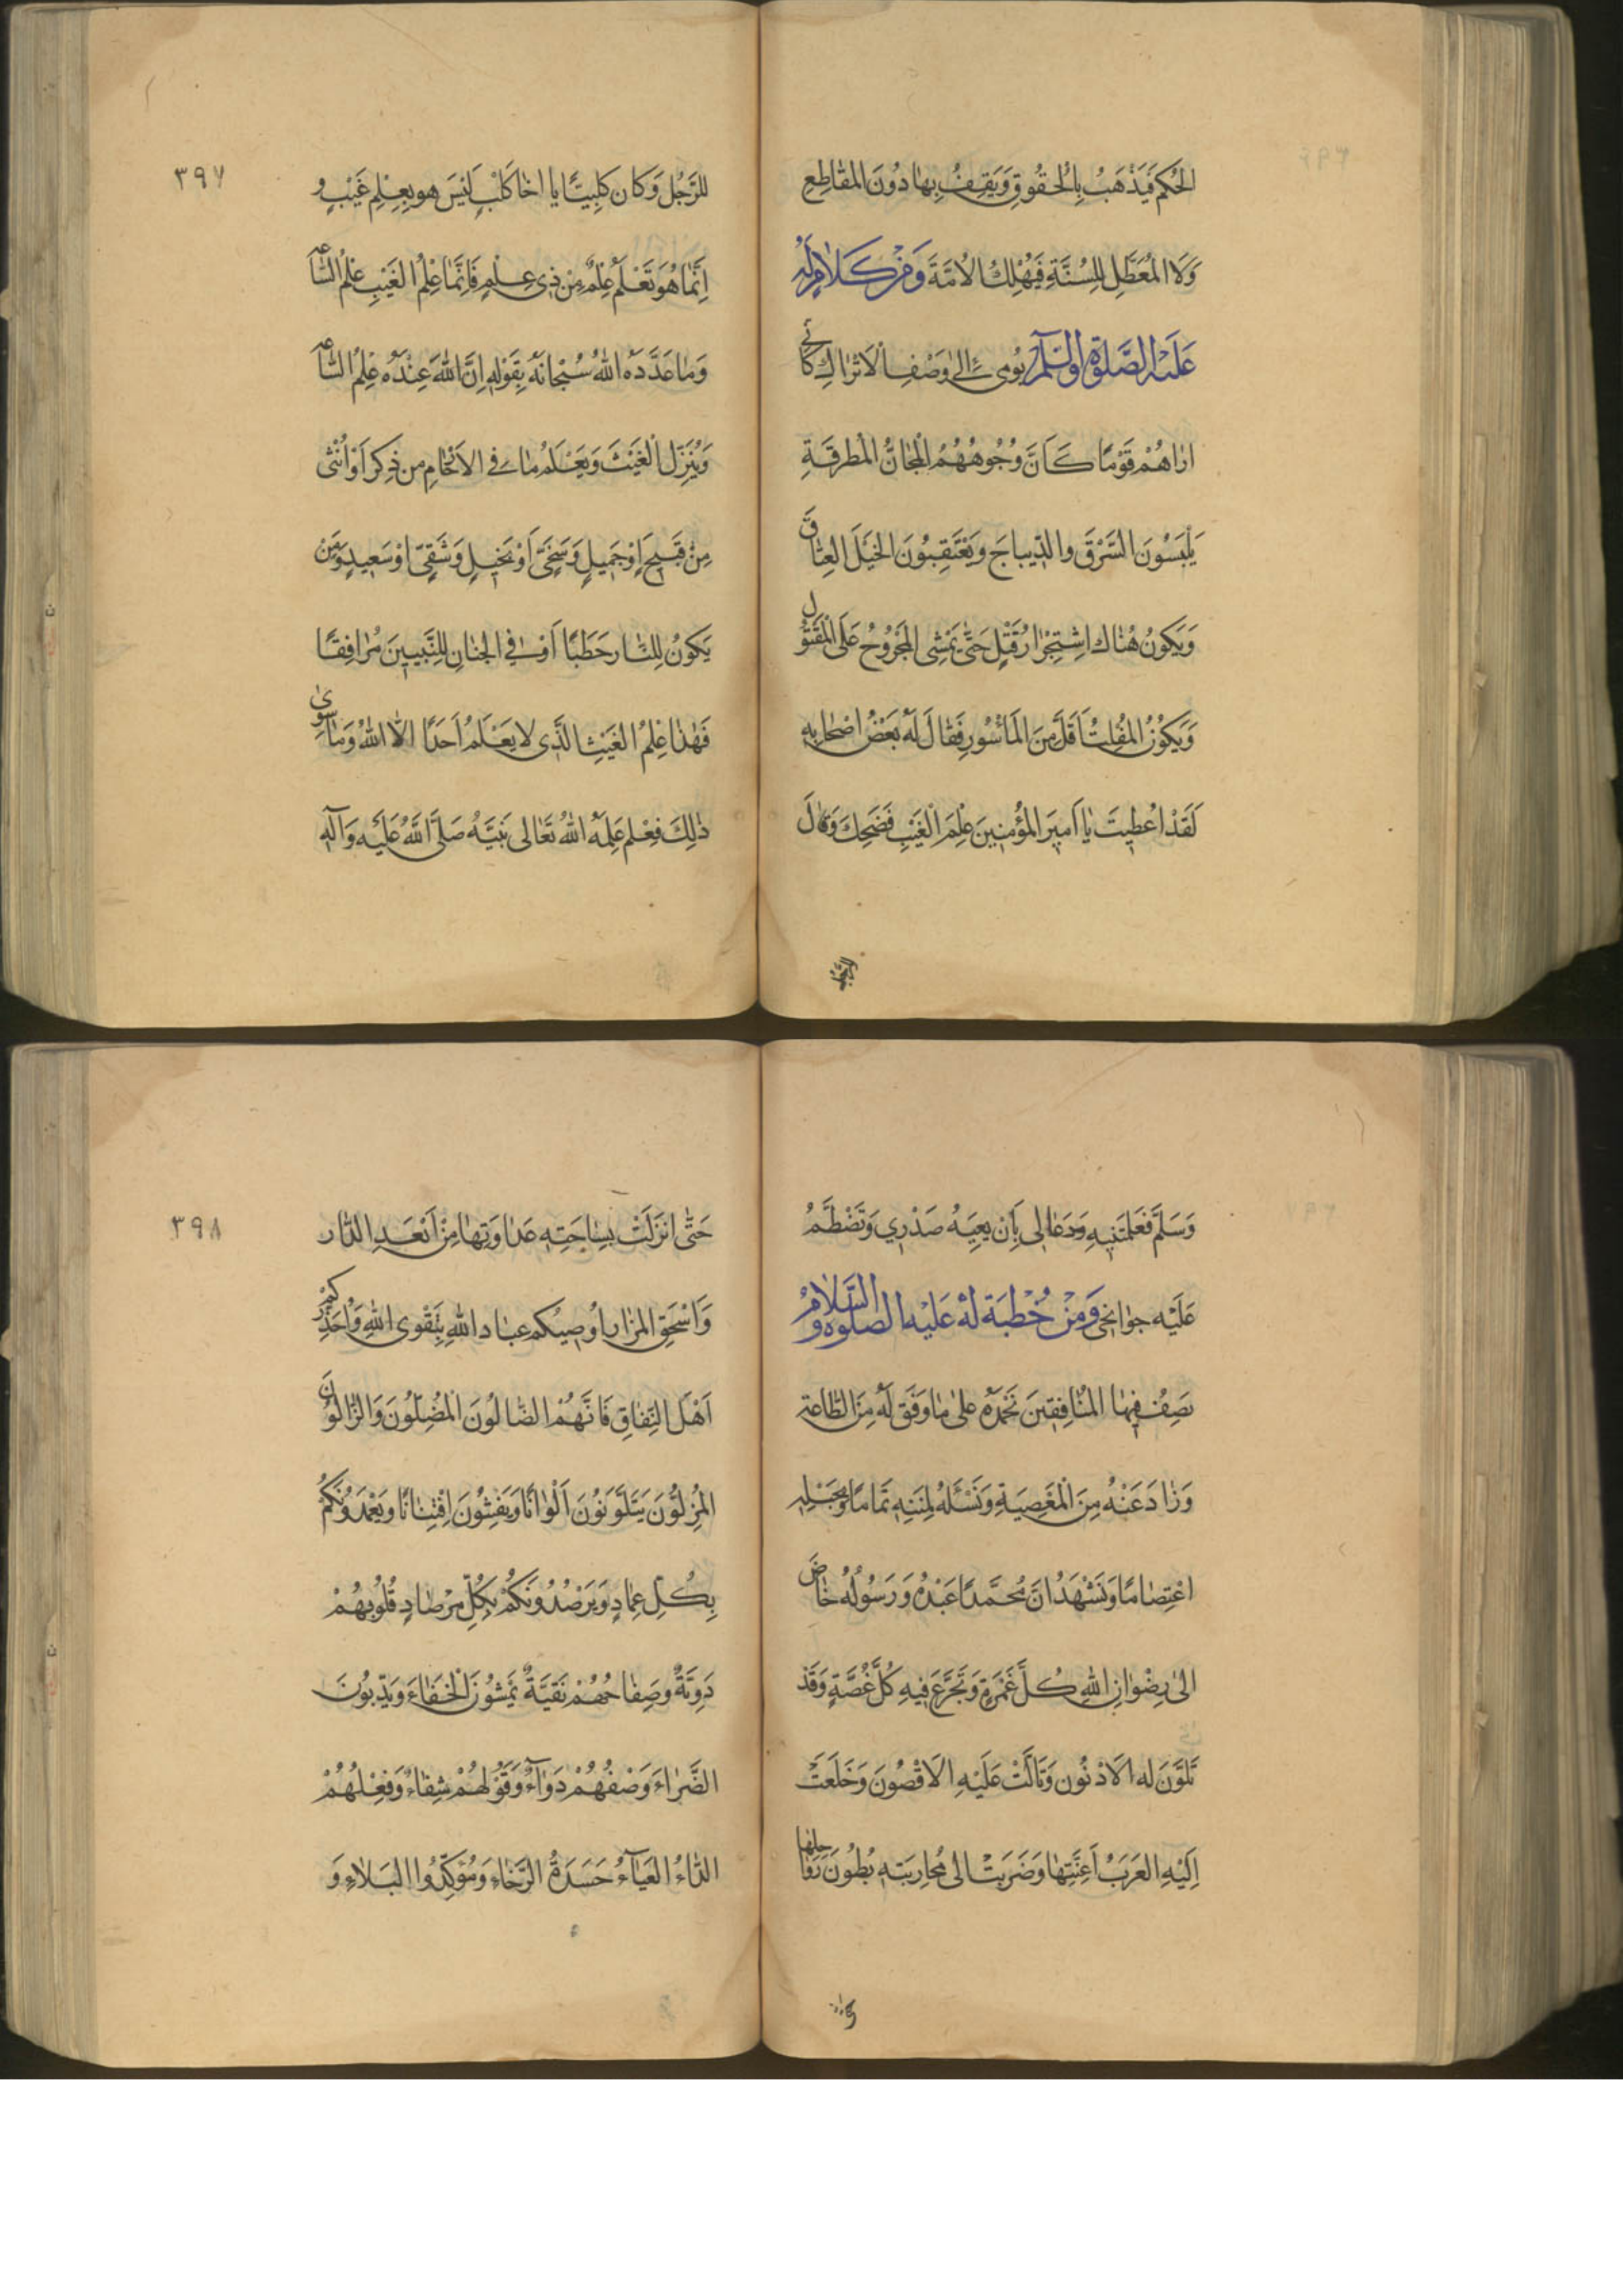 الحُكْمِ فَيَذْهَبُ بِالْحُقُوقِ وَيَقِفُ بِهَا دُونَ المَقَاطِعِ
وَلَا الْمُعَطِّلِ لِلسُّنَّةِ فَيُهْلِكَ الْاُمَّةَ وَمِنْ كَلَامٍ لَهُ
عَلَيْهِ الصَّلٰوةُ وَالسَّلَامُ يُومِی بِهِ اِلٰی وَصْفِ الْاَتْرَاكِ كَاَنِّی
اَرَاهُمْ قَوْمًا كَاَنَّ وُجُوهَهُمُ الْمَجَانُّ الْمُطْرَقَةِ
يَلْبَسُونَ السَّرَقَ والدّيباجَ وَيَعْتَقِبُونَ الخَيْلَ العِتَاقَ
وَيَكُونُ هُنَاكَ اِسْتِجْرَارُ قَتْلٍ حَتَّى يَمْشِیَ المَجْرُوحُ عَلَى الْمَقْتُولِ
وَيَكُونُ الْمُفْلِتُ اَقَلَّ مِنَ الْمَأْسُورِ فَقَالَ لَهُ بَعْضُ اَصْحَابِهِ
لَقَدْ اُعْطِيتَ يَا اَمِيرَ الْمُؤْمِنِينَ عِلْمَ الْغَيْبِ فَضَحِكَ وَقَالَ
للرَّجُلِ
٣٩٧
للرَّجُلِ وَكَانَ كَلْبِيًّا يا اَخَا كَلْبٍ لَيْسَ هو بِعِلْمِ غَيْبٍ و
اِنَّمَا هُوَ تَعَلُّمٌ مِنْ ذِی عِلْمٍ فَاِنَّمَا عِلْمُ الْغَيْبِ عِلْمُ السَّاعَة
وَمَا عَدَّدَهُ اللهُ سُبْحَانَهُ بِقَوْلِهِ اِنَّ اللهَ عِنْدَهُ عِلْمُ السَّاعَة
وَيُنَزِّلُ الْغَيْثَ وَيَعْلَمُ مَا فِی الْاَرْحَامِ مِن ذَكَرٍ اَوْ اُنْثٰی
مِنْ قَبِيحٍ اَوْ جَمِيلٍ وَسَخِیٍّ اَوْ بَخِيلٍ وَشَقِیٍّ اَوْ سَعِيدٍ وَمَنْ
يَكُونُ لِلنَّارِ حَطَبًا اَوْ فِی الْجِنَانِ لِلنَّبِيينَ مُرَافِقًا
فَهٰذَا عِلْمُ الْغَيْبِ الَّذِی لَا يَعْلَمُ اَحَدًا اِلَّا اللهُ وَمَا سِوَی
ذٰلِكَ فَعِلْم عَلِمَهُ اللهُ تَعَالی نَبِيَّهُ صَلَّی اللهُ عَلَيْهِ وَآلِهِ
وَسَلَّمَ فَعَلَّمَنِيهِ وَدَعَا لِی بِاَن يَعِيَهُ صَدْرِي وَتَضْطَمُّ
عَلَيْهِ جَوَانِحِی وَمِنْ خُطْبَة لَهُ عَلَيْهِ الصلوة و السَّلَامُ
يَصِفُ فِيهَا المُنَافِقِينَ نَحْمَدُهُ عَلَی مَا وَفَّقَ لَهُ مِنَ الطَّاعَةِ
وَذَادَ عَنْهُ مِنَ الْمَعْصِيَةِ وَنَسْئَلُهُ لِمِنَنِهِ تَمَامًا وَبِحَبْلِهِ
اعْتِصَامًا وَنَشْهَدُ اَنَّ مُحَمَّدًا عَبْدُهُ وَرَسُولُهُ خَاضَ
اِلیٰ رِضْوَانِ اللهِ كُلَّ غَمْرَةٍ وَتَجَرَّعَ فِيهِ كُلَّ غُصَّةٍ وَقَدْ
تَلَوَّنَ له الْاَدْنُون وَتَاَلَّبَ عَلَيْهِ الْاَقْصُونَ وَخَلَعَتْ
اِلَيْهِ الْعَرَبُ اَعِنَّتَهَا وَضَرَبَتْ الی مُحَارَبَتِهِ بُطُونَ رَوَاحِلِهَا
حَتّیٰ
٣٩٨
حَتّیٰ اَنْزَلَتْ بِسَاحَتِهِ عَدَاوَتَهَا مِنْ اَبْعَدِ الدَّار
وَاَسْحَقِ المَزَارِ اُوصِيكُم عِبَادَ اللهِ بِتَقْوَی اللهِ وَاُحَذِّرُكُم
اَهْلَ النِّفَاقِ فَاِنَّهُمُ الضَّالُونَ الْمُضِلّوُنَ وَالزَّالُّونَ
المُزِلُّونَ يَتَلَوَّنُونَ اَلْوَانًا وَيَفْتَنُّونَ اِفْتِنَانًا وَيَعْمِدُونَكُمْ
بِكُلِّ عِمَادٍ وَيَرْصُدُونَكُمْ بِكُلِّ مِرْصَادٍ قُلُوبُهُمْ
دَوِيَّةٌ وَصِفَاحُهُمْ نَقِيَّةٌ يَمْشُونَ الْخَفَاءَ وَيَدِبُّونَ
الضَّرَاءَ وَصْفُهُمْ دَوَاءٌ وَقَوْلُهُمْ شِفَاءٌ وَفِعْلُهُمْ
الدَّاءُ العَيَاءُ حَسَدَةُ الرَّخَاءِ وَمُؤَكِّدُوا الْبَلَاءِ وَ